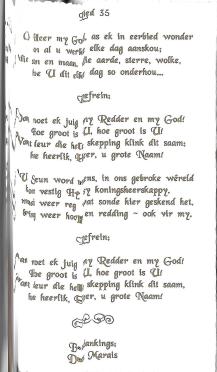 gied 35
O Heer my God, as ek in eerbied wonder
en al u werke elke dag aanskou;
son en maan, aarde, sterre, wolke,
hoe U dit elke dag so onderhou...
Refrein;
Dan moet ek juig my Redder en my God!
Hoe groot is U, hoe groot is U!
deur die hele skepping klink dit saam,
Hoe heerlik, Heer, u grote Naam!
U Seun word mens, in ons gebroke wêreld
kom vestig Hy sy koningsheerskappy.
weer reg wat sonde hier geskend het,
bring weer hoop en redding - ook vir my.
Refrein;
Dan moet ek juig my Redder en my God!
Hoe groot is U, hoe groot is U!
deur die hele skepping klink dit saam,
Hoe heerlik, Heer, u grote Naam!
Bedankings;
Marais